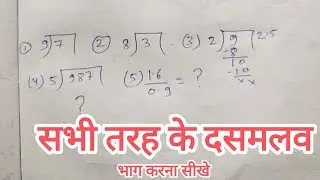 (1) 9)7 (2) 8)3 (3) 2)9(2.5
-8
10
-10
xx
(4) 5)987 (5) 1.6/0.9 = ?
?
सभी तरह के दसमलव
भाग करना सीखे